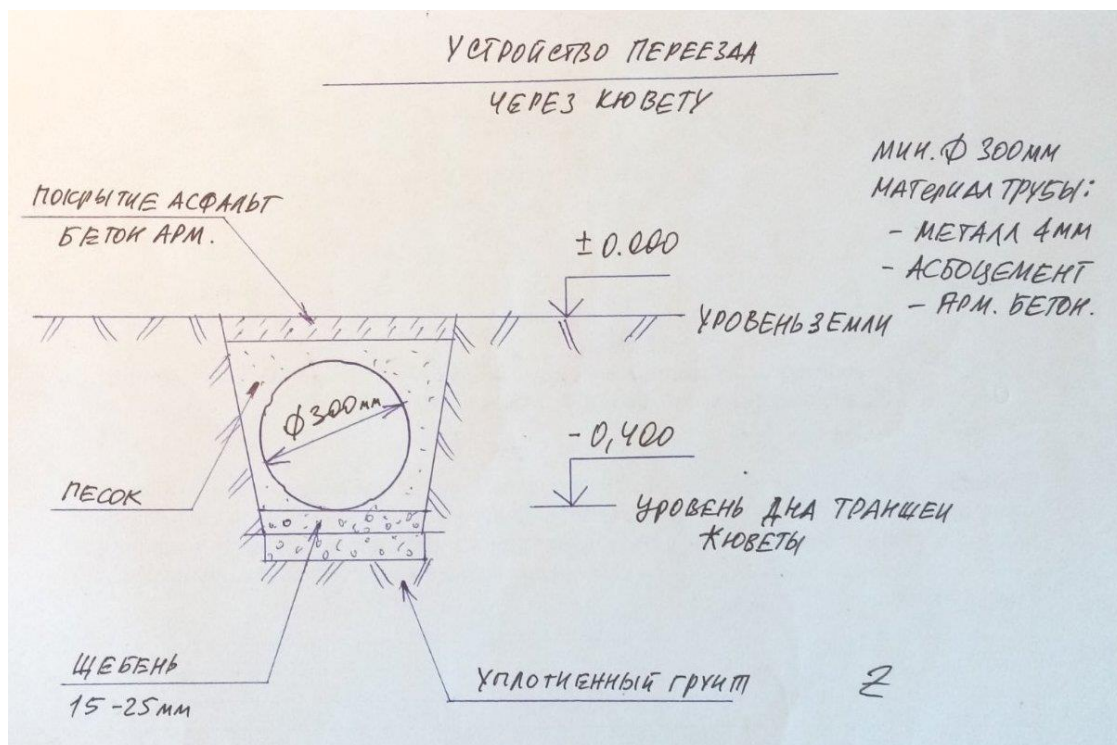 УСТРОЙСТВО ПЕРЕЕЗДА
ЧЕРЕЗ КЮВЕТУ
МИН. Ф 300ММ
МАТЕРИАЛ ТРУБЫ:
- МЕТАЛЛ 4ММ
- АСБОЦЕМЕНТ
- АРМ. БЕТОН.
ПОКРЫТИЕ АСФАЛЬТ
БЕТОН АРМ.
± 0.000
УРОВЕНЬ ЗЕМЛИ
Ф300мм
- 0,400
ПЕСОК
УРОВЕНЬ ДНА ТРАНШЕИ
КЮВЕТЫ
ЩЕБЕНЬ
15-25мм
УПЛОТНЕННЫЙ ГРУНТ
2